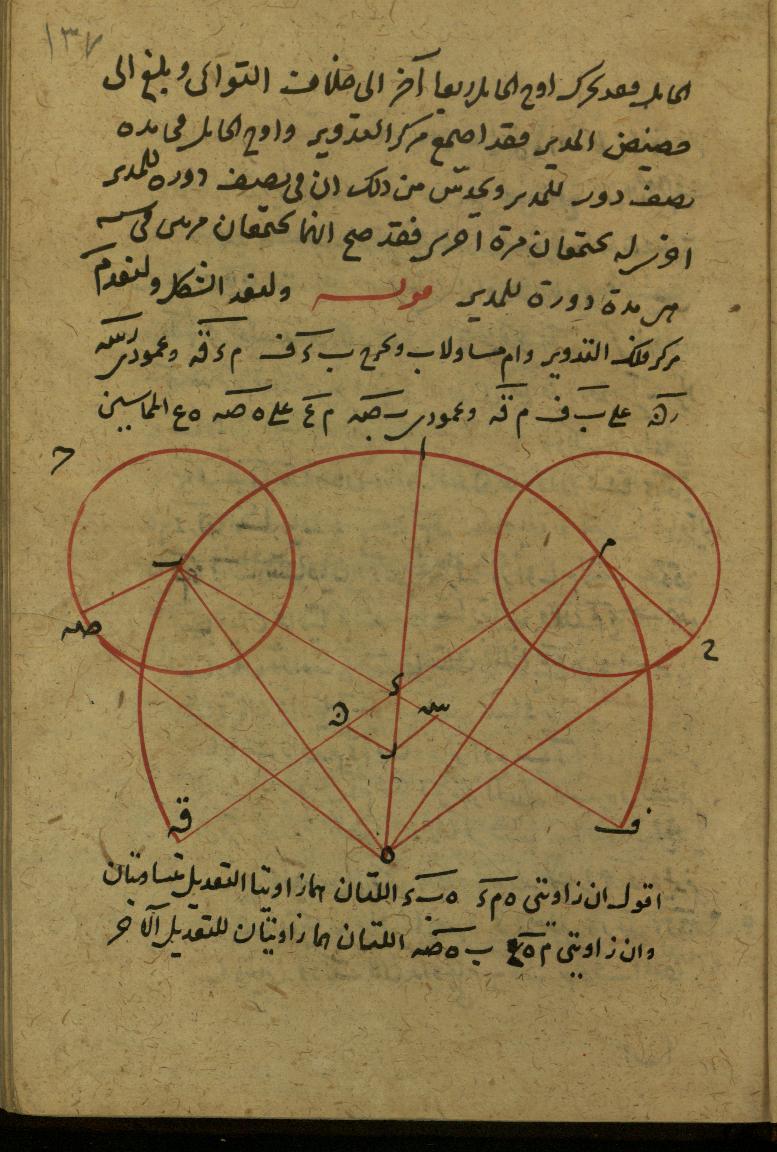 ١٣٧
الحامل وقد تحرك اوج الحامل ربعا آخر الى خلاف التوالى وبلغ الى
حضيض المدير فقد اجتمع مركز التدوير واوج الحامل فى مدة
نصف دور للمدير ويحدس من ذلك ان فى نصف دورة للمدير
اخر له يجتمعان مرة اخرى فقد صح انهما يجتمعان مرتين فى
مدة دورة للمدير قوله ولنعد الشكل وليقدم
مركز فلك التدوير وام متساويان ونخرج ب ء ف م ء ق وعمودى ر س
ر ن على ب ف م ق وعمودى ب ص م ع على ه ص ه ع المماسين
ا
ح
ب
م
ص
ع
ء
ن
س
ر
ق
ف
ه
اقول ان زاويتى ه م ء ه ب ء اللتان هما زاويتا التعديل متساويتان
وان زاويتى م ه ع ب ه ص اللتان هما زاويتان للتعديل الآخر